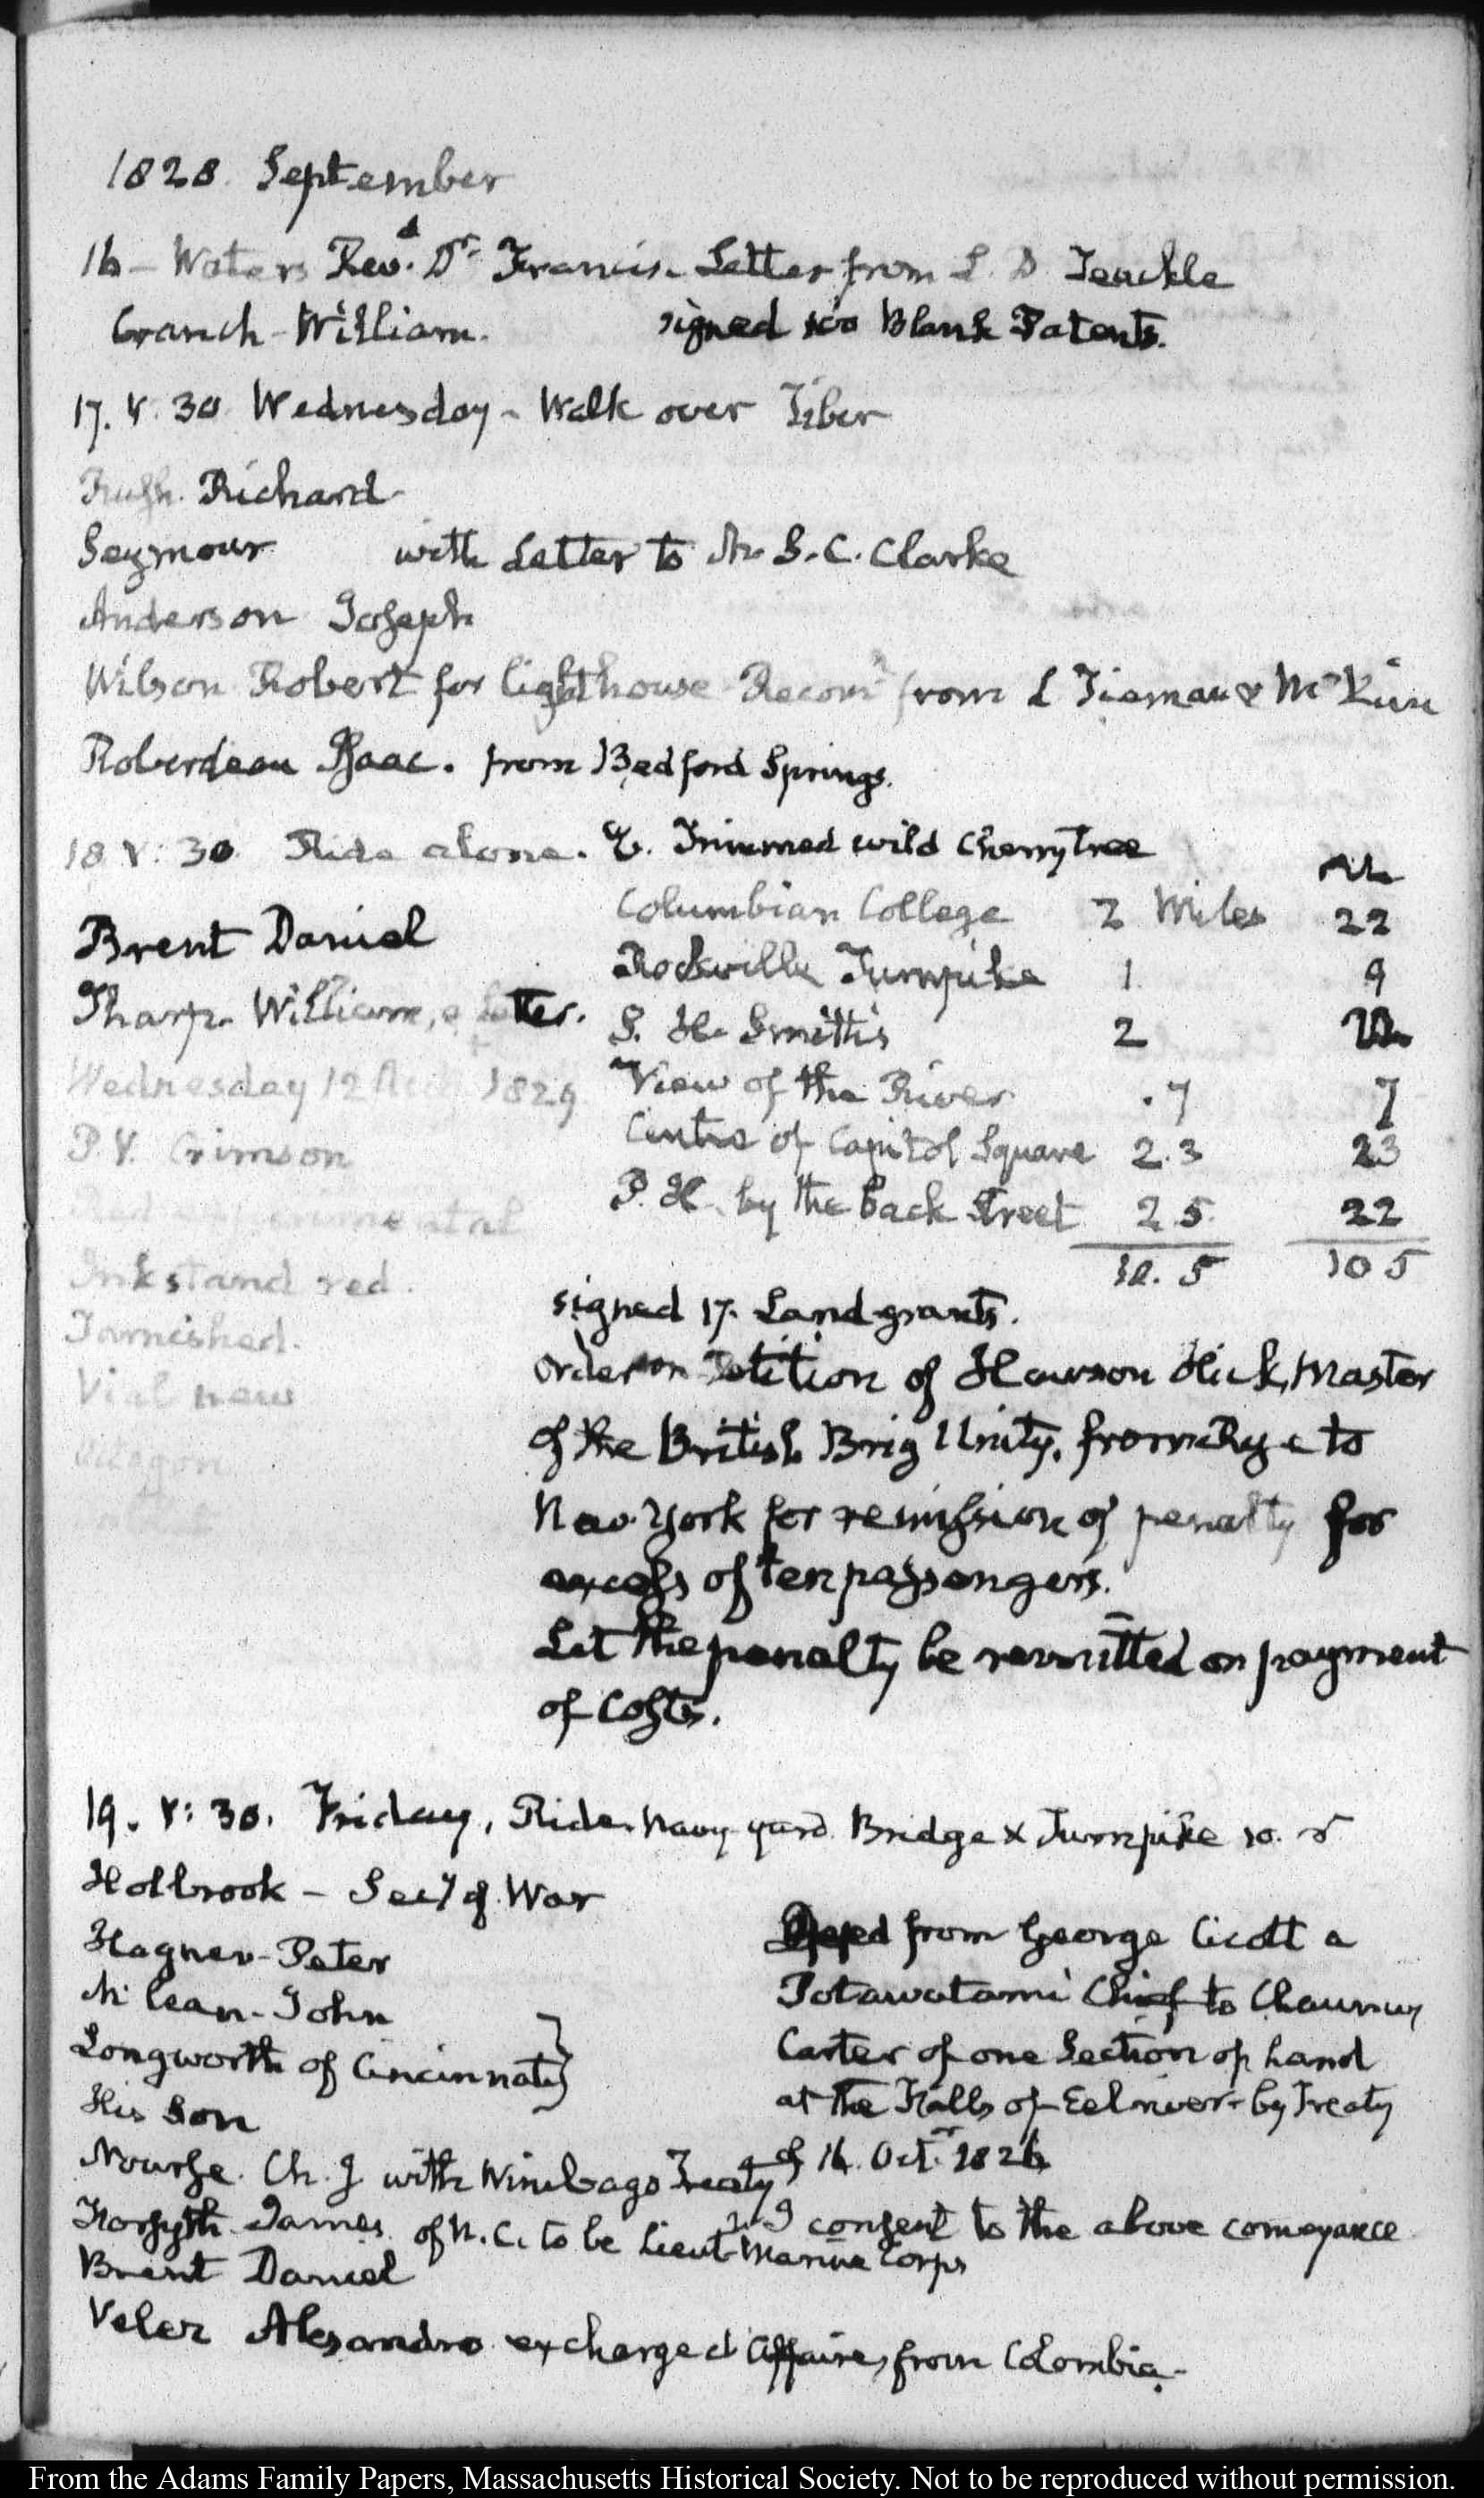 1828. September
16 - Waters Rev.d Dr. Francis. Letter from L. D. Teackle
Cranch - William. signed 100 Blank Patents.
17. V. 30 Wednesday - Walk over Tiber
Rush. Richard
Seymour with Letter to Mr S. C. Clarke
Anderson Joseph
Wilson Robert for lighthouse Recomn from L Tiernan & McKim
Roberdeau Isaac. from Bedford Springs.
18 V: 30 Ride alone. Trimmed wild Cherry Tree
Brent Daniel
Tharp. William, a letter.
Wednesday 12 1829
P. V. Crimson
Red experimental
Inkstand red.
Tarnished.
Vial new
Columbian College 2 Miles 22
Rockville Turnpike 1 9
S. H. Smith's 2
View of the River .7 7
Centre of Capitol Square 2.3 23
P. H. by the back Street 2.5 22
10.5 105
signed 17. Land grants.
Order on Petition of Hawson Hick, Master
of the British Brig Unity, from Rye to
New York for remission of penalty for
excess of ten passengers.
Let the penalty be remitted on payment
of Costs.
19. V: 30. Friday, Ride Navy yard Bridge & Turnpike 10. 5
Holbrook - Secy of War
Hagner - Peter
McLean - John
Longworth of Cincinnati }
His Son
Nourse. Ch. J with Winebago Treaty
Forsyth. James of N. C. to be Lieut Marine Corps
Brent Daniel
Velez Alexandro ex charge d'Affaires from Colombia.
Deed from George Cicott a
Potawatami Chief to Chauncey
Carter of one Section of Land
at the Falls of Eel river by Treaty
of 16. Octr. 1826
I consent to the above conveyance
From the Adams Family Papers, Massachusetts Historical Society. Not to be reproduced without permission.